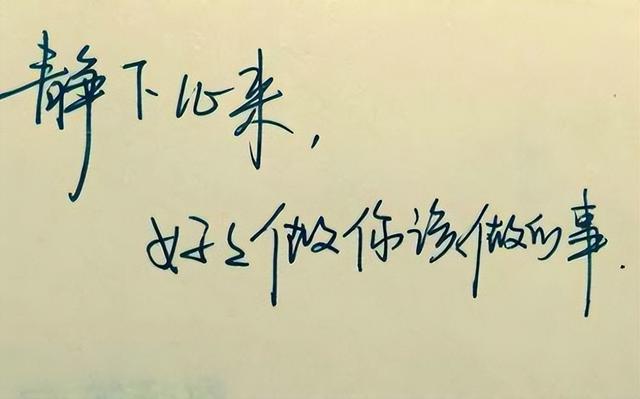 静下心来,
好々做你该做的事.